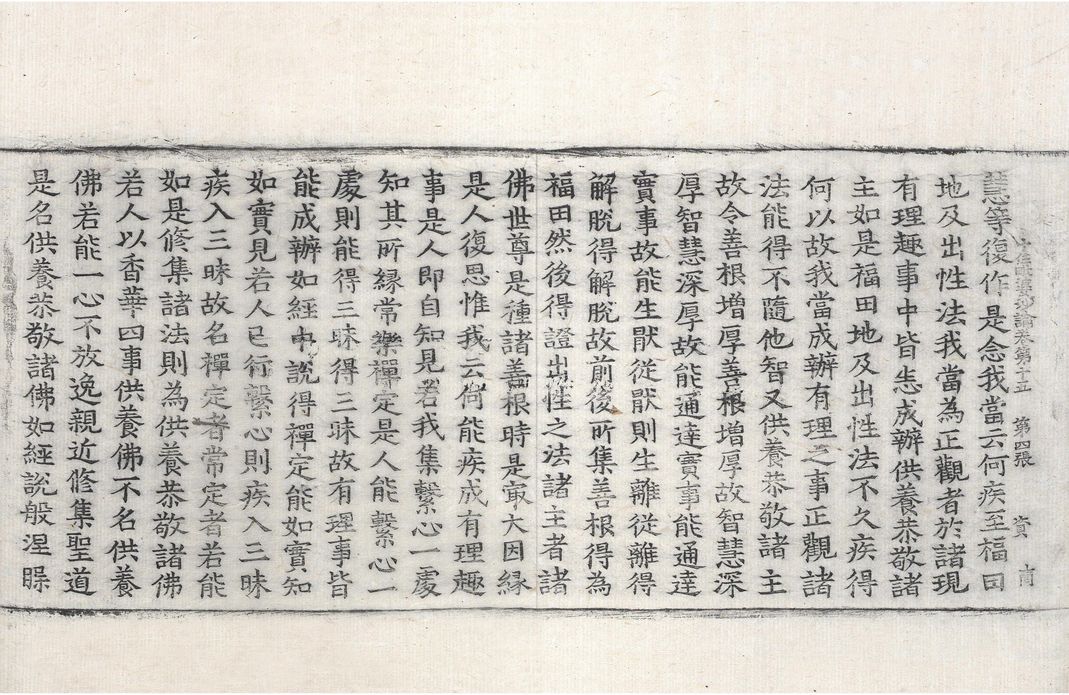 十住毗婆沙論卷第十五 第四張 資
慧等復作是念我當云何疾至福田
地及出性法我當為正觀者於諸現
有理趣事中皆悉成辦供養恭敬諸
主如是福田地及出性法不久疾得
何以故我當成辦有理之事正觀諸
法能得不隨他智又供養恭敬諸主
故令善根增厚善根增厚故智慧深
厚智慧深厚故能通達實事能通達
實事故能生猒從猒則生離從離得
解脫得解脫故前後所集善根得為
福田然後得證出性之法諸主者諸
佛世尊是種諸善根時是㝡大因緣
是人復思惟我云何能疾成有理趣
事是人即自知見若我集繫心一處
知其所緣常樂禪定是人能繫心一
處則能得三昧得三昧故有理事皆
能成辦如經中說得禪定能如實知
如實見若人已行繫心則疾入三昧
疾入三昧故名禪定者常定者若能
如是修集諸法則為供養恭敬諸佛
若人以香華四事供養佛不名供養
佛若能一心不放逸親近修集聖道
是名供養恭敬諸佛如經說般涅槃